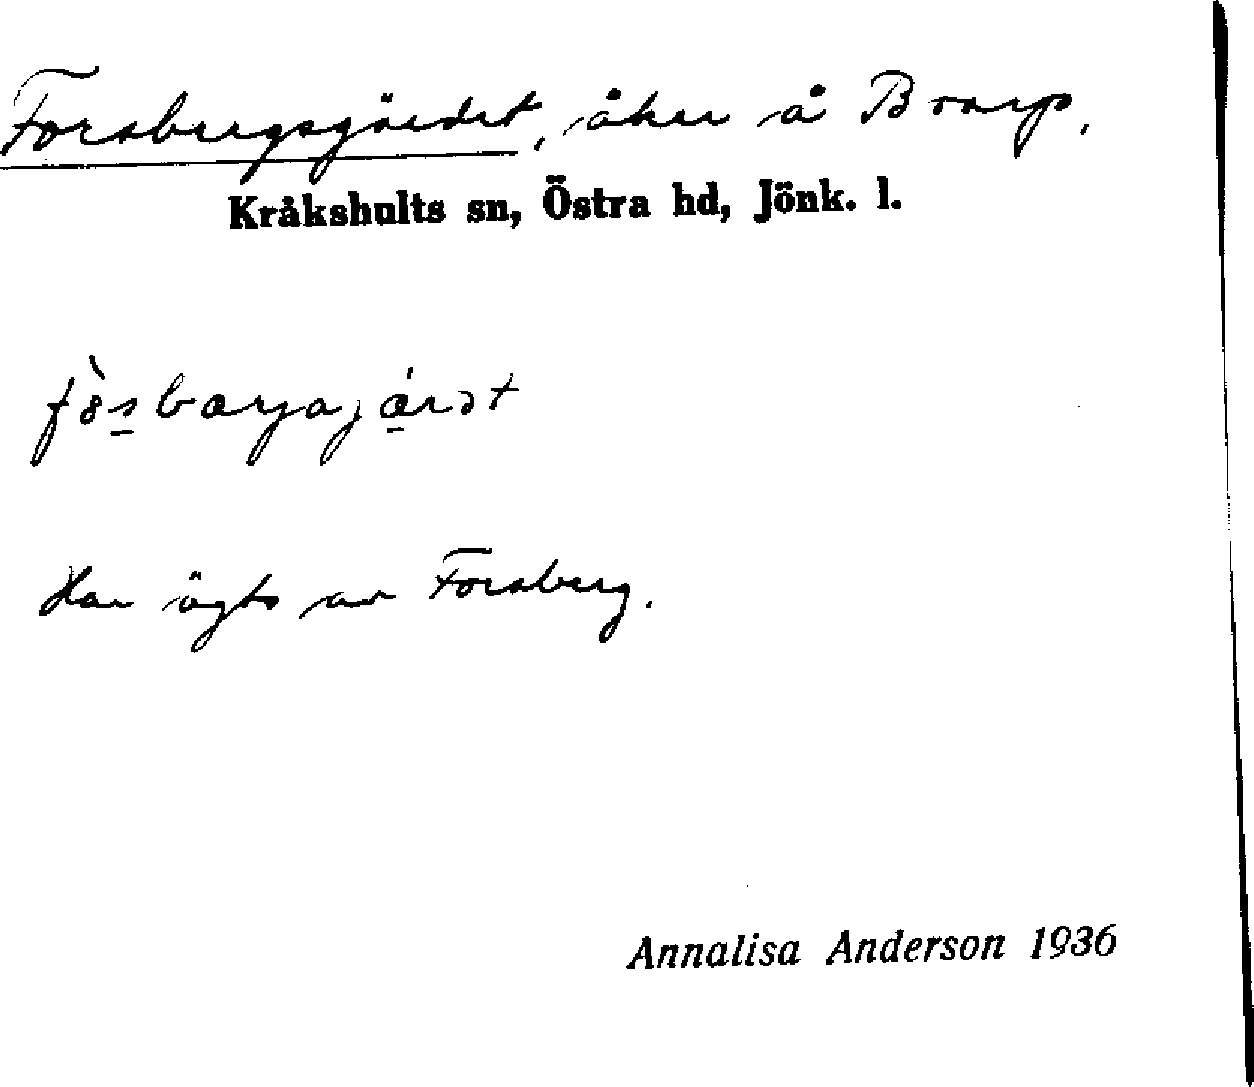 Forsbergsgärdet, åker å Broarp,
Kråkshults sn, Östra hd, Jönk. l.
Har ägts av Forsberg.
Annalisa Anderson 1936